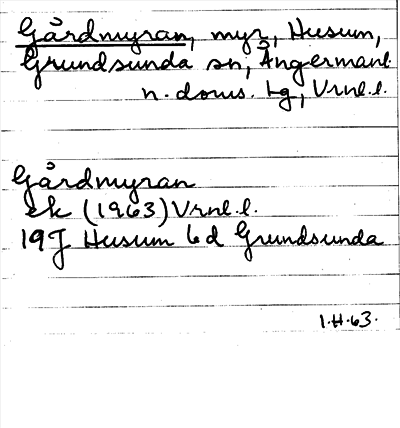 Gårdmyran, myr, Husum,
Grundsunda sn, Ångermanl.
n. doms. tg, Vrnl.l.
Gårdmyran
ek (1963) Vrnl.l.
19J Husum 6d Grundsunda
I.H.63.